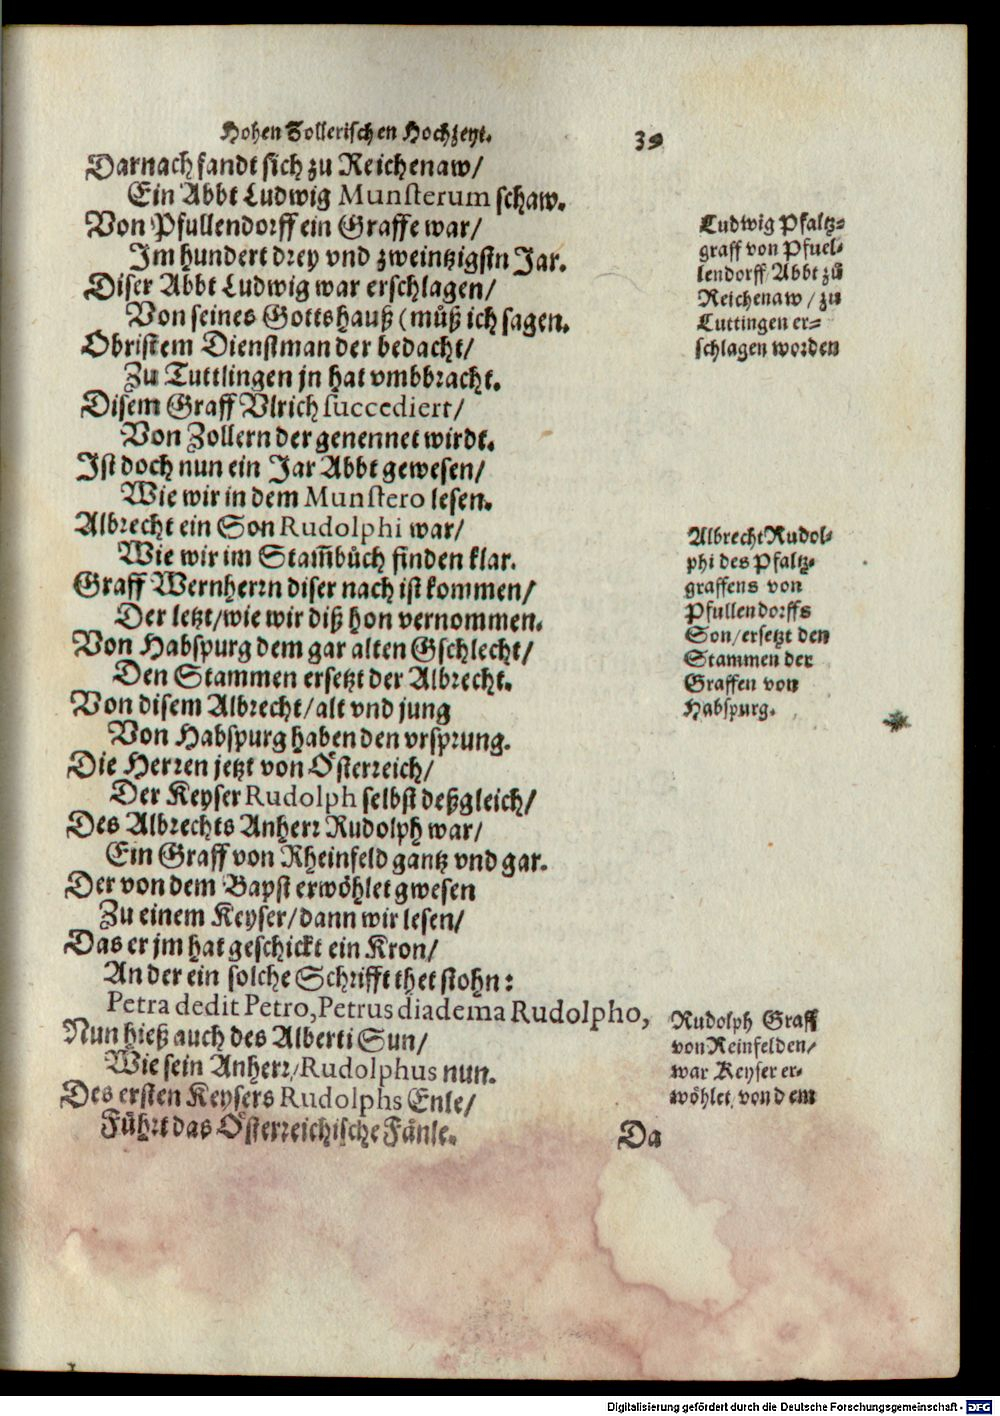 Hohen Zollerischen Hochzeyt. 39
Darnach fandt sich zu Reichenaw/
Ein Abbt Ludwig Munsterum schaw.
Von Pfullendorff ein Graffe war/
Im hundert drey vnd zweintzigstn Jar.
Diser Abbt Ludwig war erschlagen/
Von seines Gottshauß (můß ich sagen.
Obristem Dienstman der bedacht/
Zu Tuttlingen jn hat vmbbracht.
Ludwig Pfaltz-
graff von Pfuel-
lendorff/Abbt zů
Reichenaw/ zu
Tuttingen er-
schlagen worden
Disem Graff Vlrich succediert/
Von Zollern der genennet wirdt.
Ist doch nun ein Jar Abbt gewesen/
Wie wir in dem Munstero lesen.
Albrecht ein Son Rudolphi war/
Wie wir im Stam̃bůch finden klar.
Graff Wernherrn diser nach ist kommen/
Der letzt/wie wir diß hon vernommen.
Von Habspurg dem gar alten Gschlecht/
Den Stammen ersetzt der Albrecht.
Albrecht Rudol-
phi des Pfaltz-
graffens von
Pfullendorffs
Son/ersetzt den
Stammen der
Graffen von
Habspurg.
Von disem Albrecht/alt vnd jung
Von Habspurg haben den vrsprung.
Die Herren jetzt von Österreich/
Der Keyser Rudolph selbst deßgleich/
Des Albrechts Anherr Rudolph war/
Ein Graff von Rheinfeld gantz vnd gar.
Der von dem Bapst erwöhlet gwesen
Zu einem Keyser/dann wir lesen/
Das er jm hat geschickt ein Kron/
An der ein solche Schrifft thet stohn:
Petra dedit Petro, Petrus diadema Rudolpho,
Nun hieß auch des Alberti Sun/
Wie sein Anherr/Rudolphus nun.
Des ersten Keysers Rudolphs Enle/
Führt das Österreichische Fänle.
Rudolph Graff
von Reinfelden/
war Keyser er-
wöhlet von dem
Da
Digitalisierung gefördert durch die Deutsche Forschungsgemeinschaft - DFG